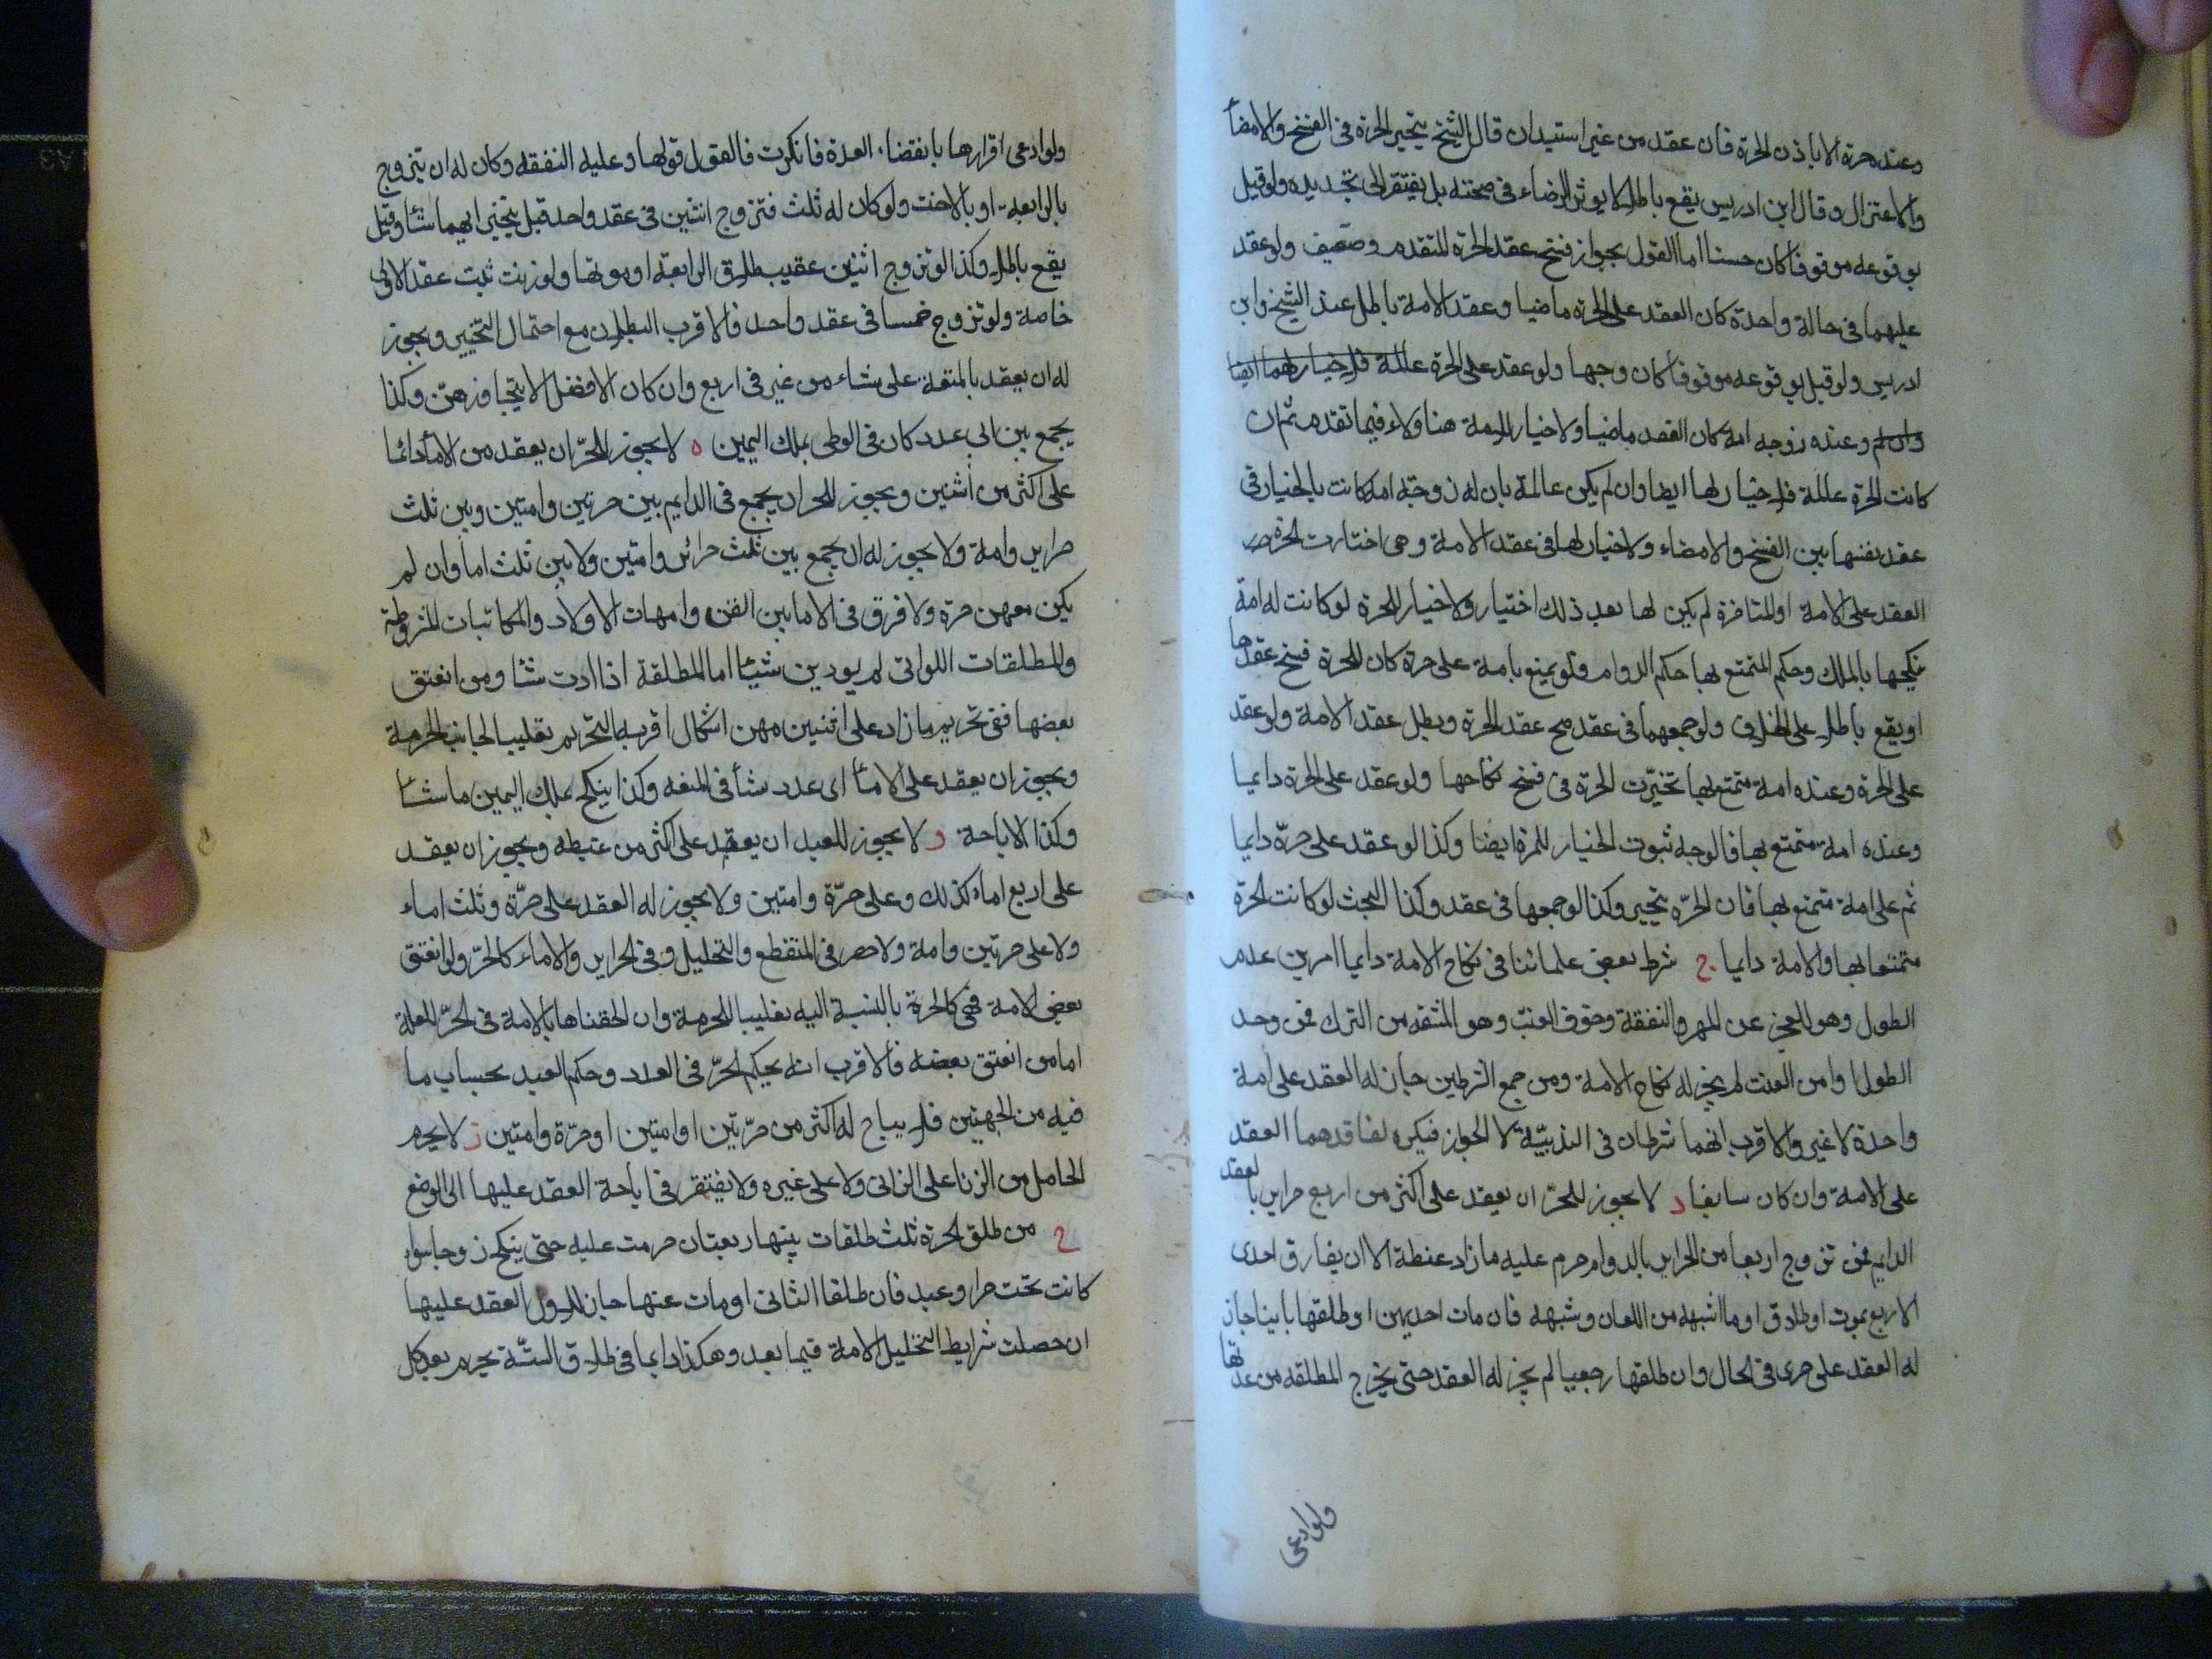 وعنده حرة الا باذن الحرة فان عقد من غير استيذان قال الشيخ يتخير الحرة فى الفسخ والامضأ
والاعتزال وقال ابن ادريس يقع باطلا لا يوثر الرضاء فى صحته بل يفتقر الى تجديده ولو قيل
بوقوعه موقوفا كان حسنا اما القول بجواز فسخ عقد الحرة المتقدم وضعيف ولو عقد
عليهما فى حالة واحدة كان العقد على الحرة ماضيا وعقد الامة باطل عند الشيخ وابن
ادريس ولو قيل بوقوعه موقوفا كان وجها ولو عقد على الحرة عالمة فلا خيار لهما ايضا
وان لم وعنده زوجه امة كان العقد ماضيا ولا خيار للامة هنا ولاء فيما تقدم ثم ان
كانت الحرة عالمة فلا خيار لها ايضا وان لم يكن عالمة بان له زوجة امة كانت بالخيار فى
عقد نفسها بين الفسخ والامضاء ولا خيار لها فى عقد الامة ومى اختارت الحرة
العقد على الامة او المتافرة لم يكن لها بعد ذلك اختيار ولا خيار للحرة لو كانت له امة
ينكحها بالملك وحكم المتمتع بها حكم الدوام فلو تمتع بامة على حرة كان للحرة فسخ عقدها
او يقع باطلا على الخلاف ولو جمعهما فى عقد صح عقد الحرة وبطل عقد الامة ولو عقد
على الحرة وعنده امة متمتع بها تخيرت الحرة فى فسخ نكاحها ولو عقد على الحرة دايما
وعنده امة متمتع بها فالوجه ثبوت الخيار للحرة ايضا وكذا لو عقد على حرّة دايما
ثم على امة متمتع بها فان الحرّه تتخير وكذا لو جمعها فى عقد وكذا البحث لو كانت الحرة
متمتعا بها والامة دايما ج شرط بعض علمائنا فى نكاح الامة دايما امرين عدم
الطول وهو العجز عن المهر والنفقة وخوف العنت وهو المشقه من الترك فمن وجد
الطول او امن العنت لم يجز له نكاح الامة ومن جمع الشرطين جاز له العقد على امة
واحدة لا غير والاقرب انهما شرطان فى الندبيّة لا الجواز فيكره لفاقدهما العقد
على الامة وان كان سايغا د لا يجوز للحرّ ان يعقد على اكثر من اربع حراير بالعقد
الدايم فمن تزوج اربعا من الحراير بالدوام حرم عليه ما زاد غبطة الا ان يفارق احدى
الاربع بموت او طلاق او ما اشبهه من اللعان وشبهه فان مات احديهن او طلقها باينا جاز
له العقد على اخرى فى الحال وان طلقها رجعيا لم يجز له العقد حتى يخرج المطلقه من عدتها
ولو ادعى
ولو ادعى اقرارها بانقضاء العدة فانكرت فالقول قولها وعليه النفقه وكان له ان يتزوج
بالرابعة او بالاخت ولو كان له ثلث فتزوج اثنتين فى عقد واحد قيل يتخير ايهما شأ وقيل
يقع باطلا وكذا لو تزوج اثنتين عقيب طلاق الرابعة او موتها ولو رتبت ثبت عقد الاولى
خاصة ولو تزوج خمسا فى عقد واحد فالاقرب البطلان مع احتمال التخيير ويجوز
له ان يعقد بالمتعة على مشاء من غير فى اربع وان كان الافضل الا يتجاوزهن وكذا
يجمع بين اى عدد كان فى الوطى بملك اليمين ه لا يجوز للحرّ ان يعقد من الامأ دائما
على اكثر من اثنتين ويجوز للحر ان يجمع فى الدايم بين حرتين وامتين وبين ثلث
حراير وامة ولا يجوز له ان يجمع بين ثلث حرائر وامتين ولا بين ثلث امأ وان لم
يكن معهن حرة ولا فرق فى الاما بين القن وامهات الاولاد والمكاتبات المشروطة
والمطلقات اللواتى لم يودين شيئا اما المطلقة اذا ادت شئا ومن انعتق
بعضها ففى تحريم ما زاد على اثنتين مهن اشكال اقربه التحريم تغليبا لجانب الحرمة
ويجوز ان يعقد على الامأ اى عدد شأ فى المتعه وكذا ينكح بملك اليمين ما شئا
وكذا الاباحة و لا يجوز للعبد ان يعقد على اكثر من غبطه ويجوز ان يعقد
على اربع اماء كذلك وعلى حرّة وامتين ولا يجوز له العقد على حرّة وثلث اماء
ولا على حرتين وامة ولا حصر فى المنقطع والتحليل وفى الحراير والاماء كالحرّ ولو انعتق
بعض الامة فهى كالحرة بالنسبة اليه تغليبا للحرمة وان الحقناها بالامة فى الحرّ للعلة
اما من انعتق بعضه فالاقرب انه بحكم الحرّ فى العدد وحكم العبد بحساب ما
فيه من الجهتين فلا يباح له اكثر من حرّتين او امتين او حرّة وامتين ز لا يحرم
الحامل من الزنا على الزانى ولا على غيره ولا يفتقر فى اباحة العقد عليها الى الوضع
ح من طلق الحرة ثلث طلقات بينها رجعتان حرمت عليه حتى ينكح زوجا سواء
كانت تحت حر او عبد فان طلقا الثانى او مات عنها جاز للاول العقد عليها
ان حصلت شرايط التحليل الامة فيما بعد وهكذا دايما فى طلاق السنّة يحرم بعد كل